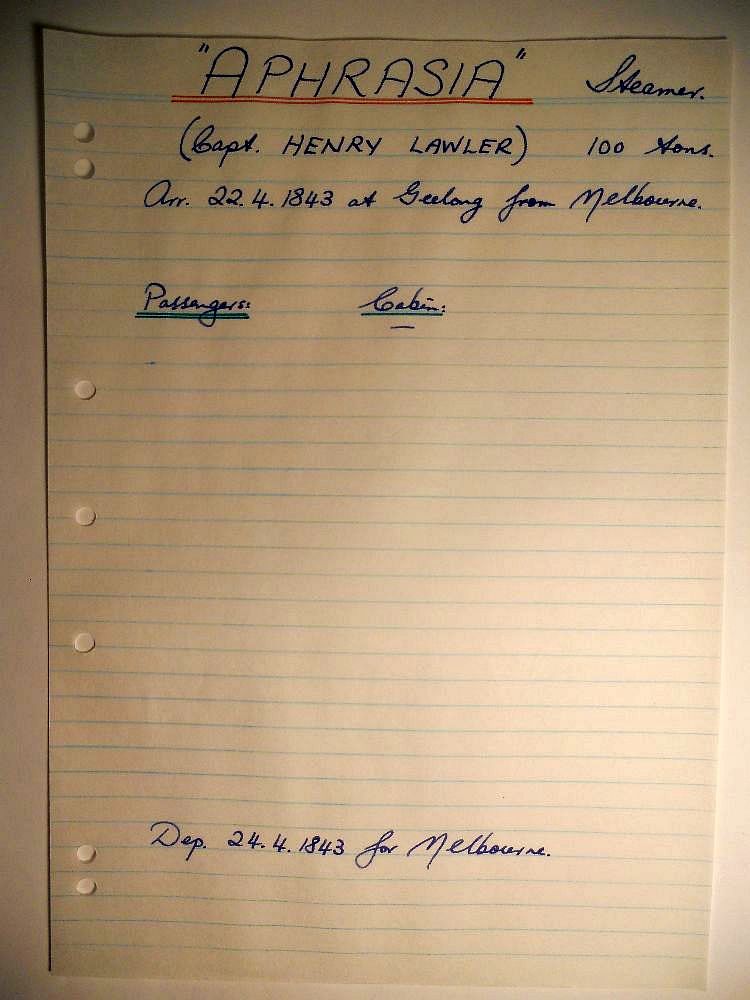 "APHRASIA" Steamer.
(Capt. HENRY LAWLER) 100 tons.
Arr. 22.4.1843 at Geelong from Melbourne.
Passengers: Cabin:
—
Dep. 24.4.1843 for Melbourne.